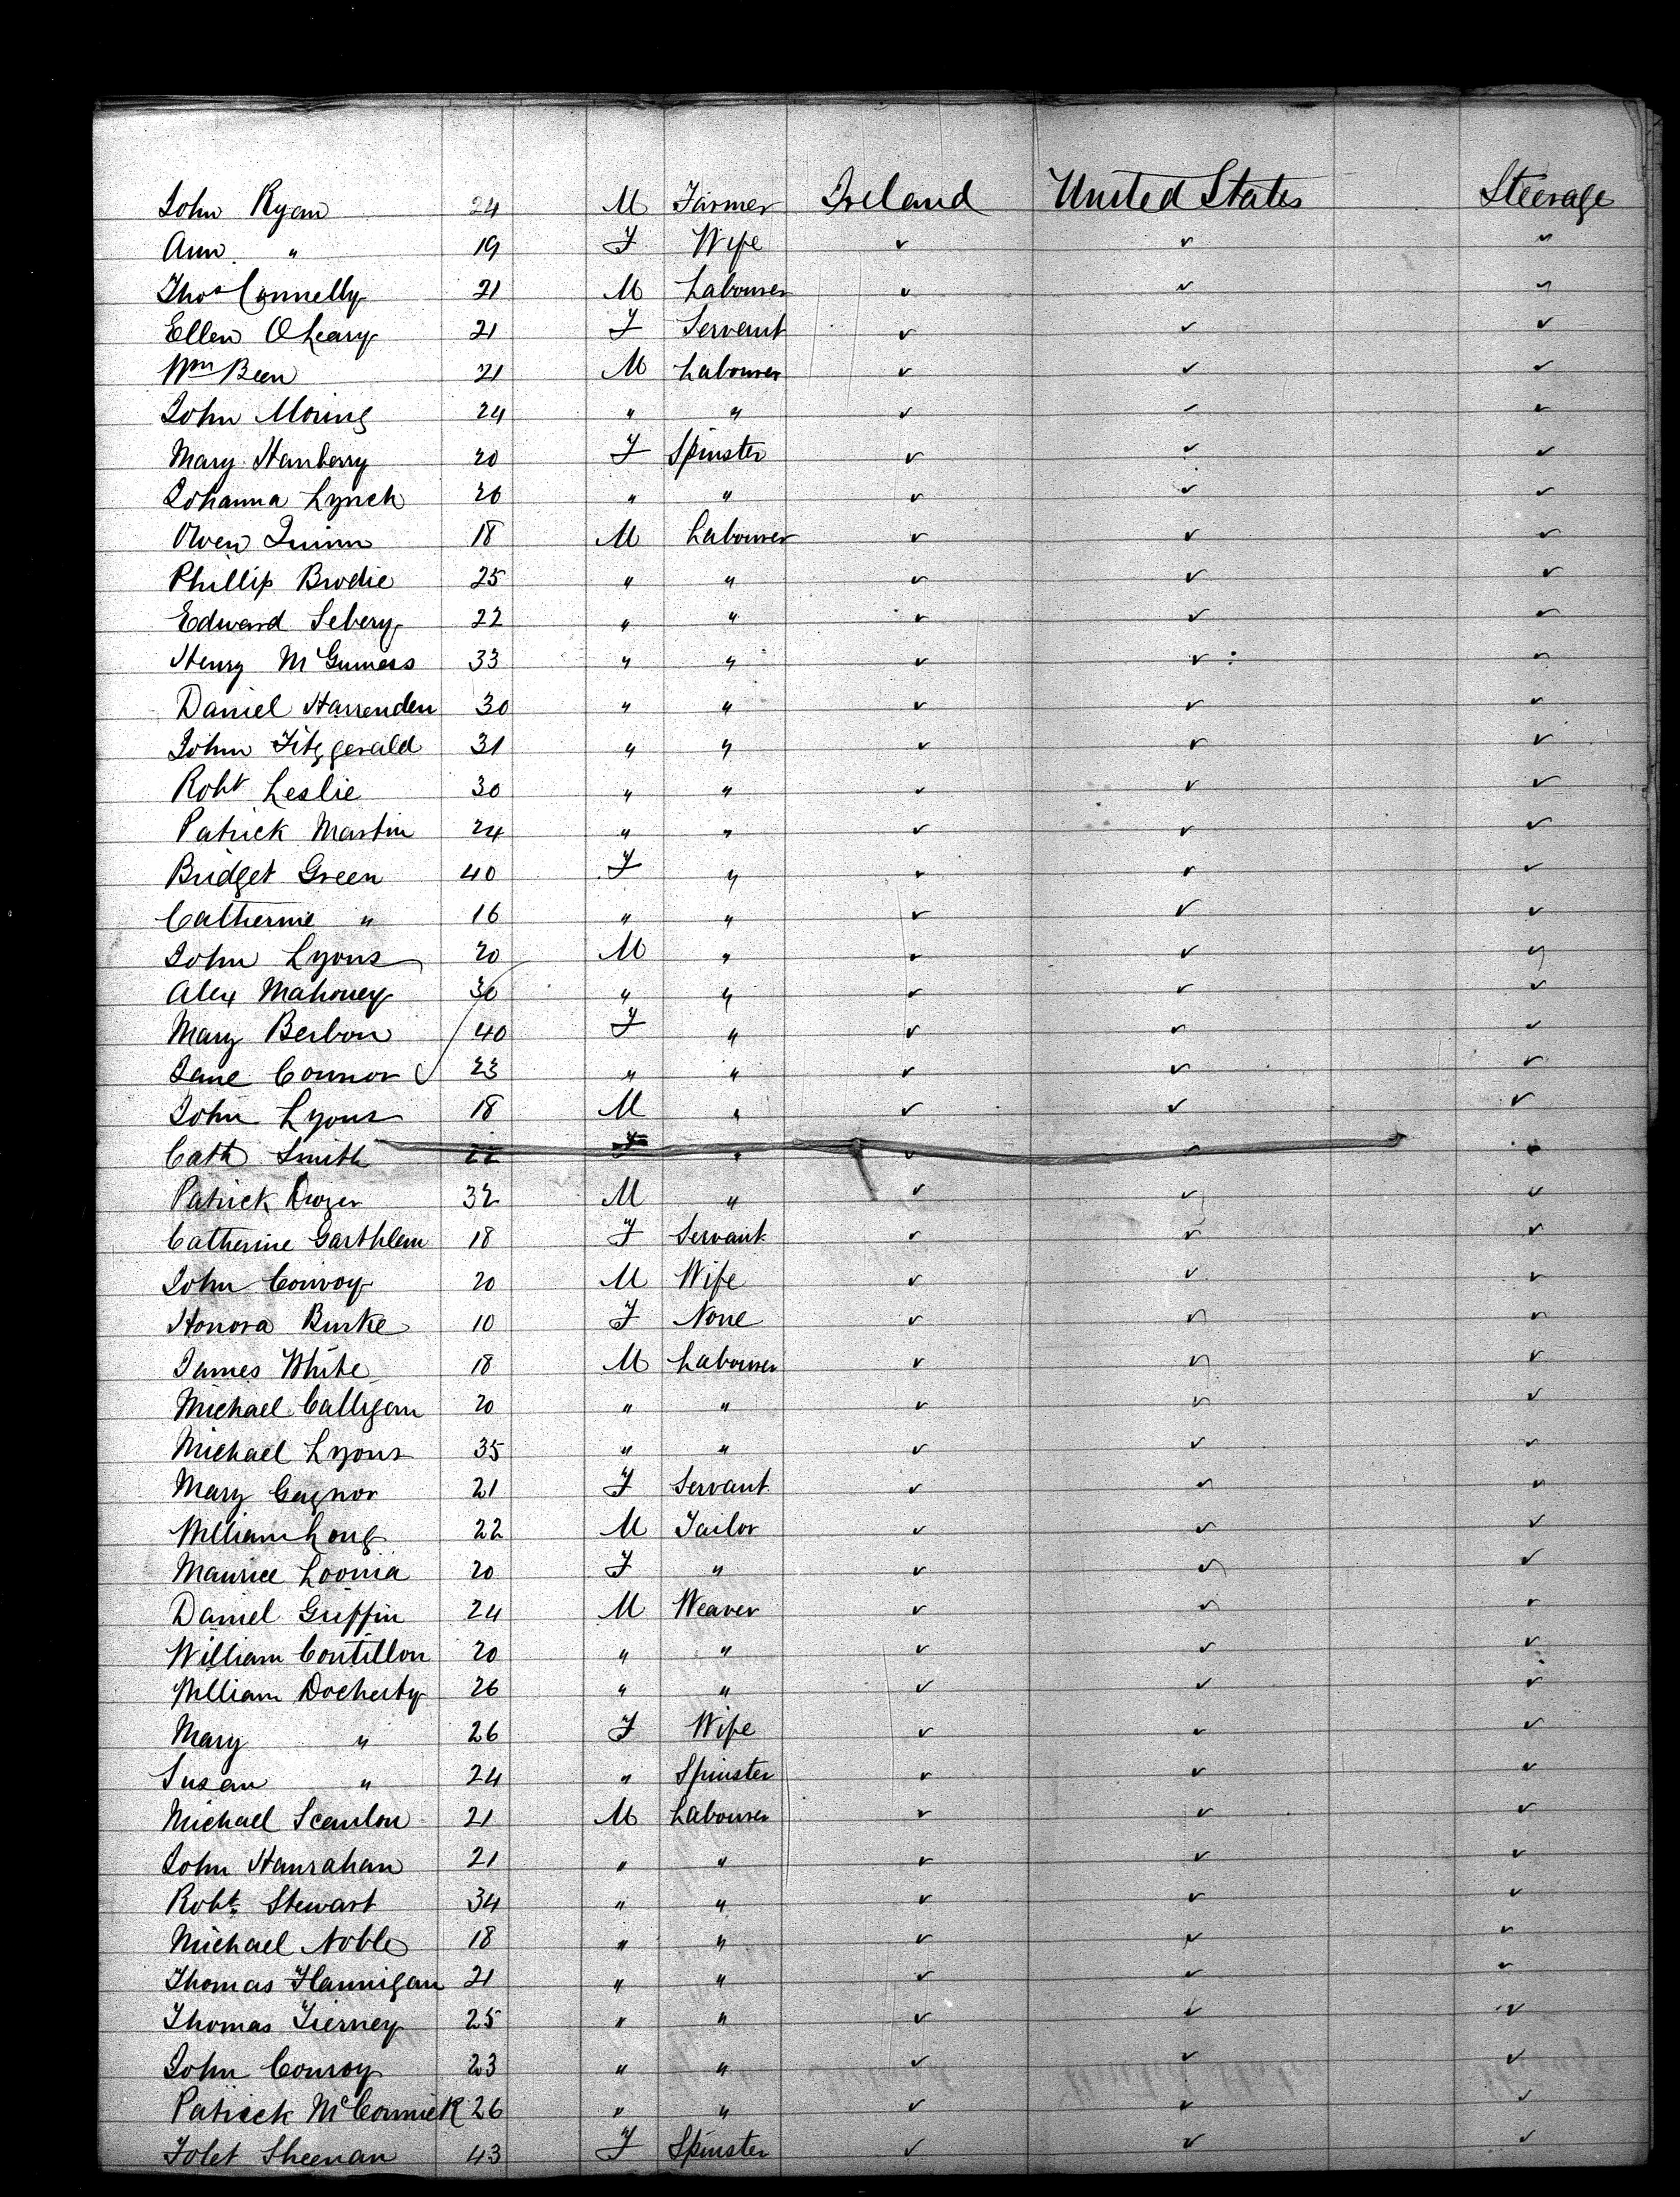 John Ryan 24 M Farmer Ireland United States Steerage
Ann " 19 F Wife " " "
Thos Connelly 21 M Labourer " " "
Ellen O Leary 21 F Servant " " "
Wm Been 21 M Labourer " " "
John Moring 24 " " " " "
Mary Hanberry 20 F Spinster " " "
Johanna Lynch 26 " " " " "
Owen Quinn 18 M Labourer " " "
Phillip Brodie 25 " " " " "
Edward Sebery 22 " " " " "
Henry McGuiness 33 " " " " "
Daniel Harrenden 30 " " " " "
John Fitzgerald 31 " " " " "
Robt Leslie 30 " " " " "
Patrick Martin 24 " " " " "
Bridget Green 40 F " " " "
Catherine " 16 " " " " "
John Lyons 20 M " " " "
Alex Mahoney 30 " " " " "
Mary Berbon 40 F " " " "
Jane Connor 23 " " " " "
John Lyons 18 M " " " "
Cath Smith 22 F " " " "
Patrick Dwyer 32 M " " " "
Catherine Garthlem 18 F Servant " " "
John Conroy 20 M Wife " " "
Honora Burke 10 F None " " "
James White 18 M Labourer " " "
Michael Calligan 20 " " " " "
Michael Lyons 35 " " " " "
Mary Gaynor 21 F Servant " " "
William Long 22 M Tailor " " "
Maurice Loonia 20 F " " " "
Daniel Griffin 24 M Weaver " " "
William Contillon 20 " " " " "
William Docherty 26 " " " " "
Mary " 26 F Wife " " "
Susan " 24 " Spinster " " "
Michael Scanlon 21 M Labourer " " "
John Hanrahan 21 " " " " "
Robt. Stewart 34 " " " " "
Michael Noble 18 " " " " "
Thomas Flannigan 21 " " " " "
Thomas Tierney 25 " " " " "
John Conroy 23 " " " " "
Patrick McCormick 26 " " " " "
Sheenan 43 F Spinster " " "